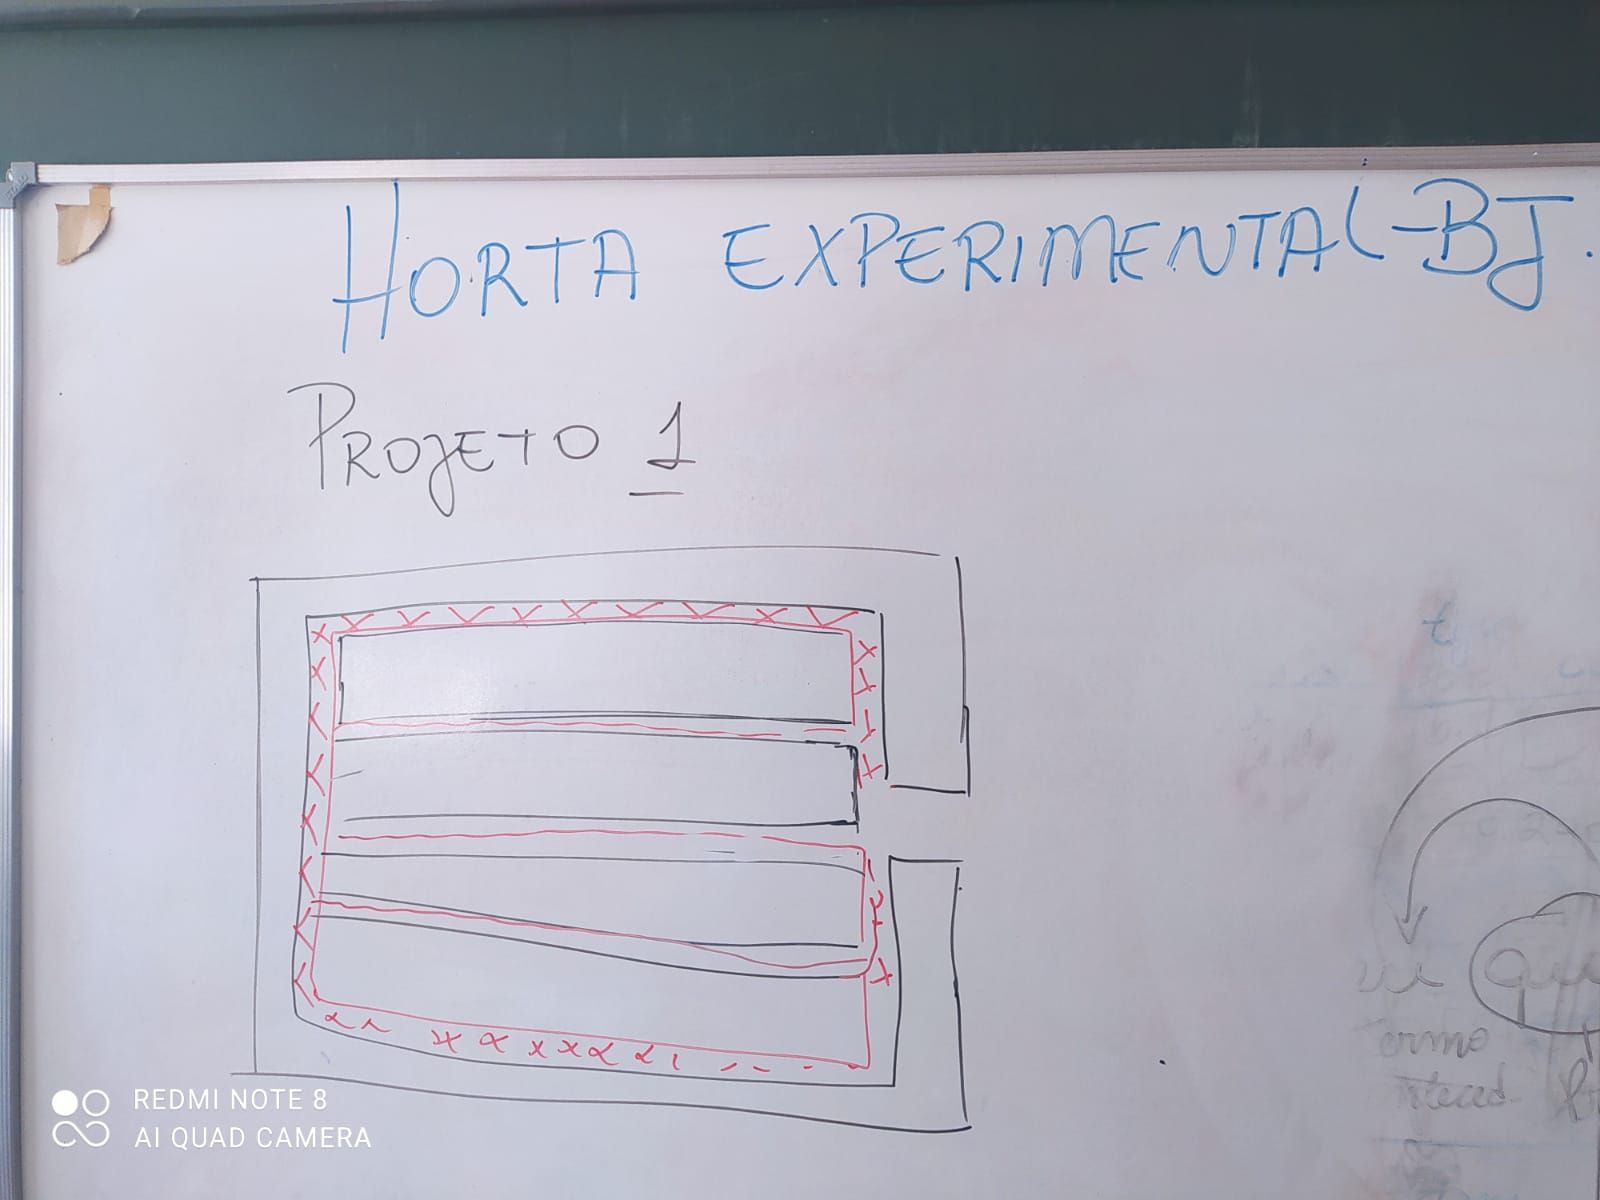 HORTA EXPERIMENTAL-BJ.
PROJETO 1
REDMI NOTE 8
AI QUAD CAMERA